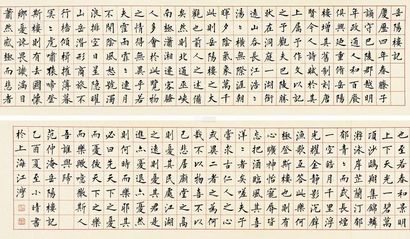 岳陽樓記
慶曆四年春滕子京
謫守巴陵郡越明
年政通人和百廢
具興乃重修岳陽樓
增其舊制刻唐
賢今人詩賦於其
上屬予作文以記
之予觀夫巴陵勝
狀在洞庭一湖銜
遠山吞長江浩浩
湯湯橫無際涯朝
暉夕陰氣象萬千
此則岳陽樓之大
觀也前人之述備
矣然則北通巫峽
南極瀟湘遷客騷
人多會於此覽物
之情得無異乎若
夫霪雨霏霏連月
不開陰風怒號濁
浪排空日星隱耀
山岳潛形商旅不
行檣傾楫摧薄暮
冥冥虎嘯猿啼登
斯樓也則有去國懷
鄉憂讒畏譏滿目
蕭然感極而悲者
矣至若春和景明
波瀾不驚
上下天光一碧萬
頃沙鷗翔集錦鱗
游泳岸芷汀蘭郁
郁青青而或長煙
一空皓月千里浮
光耀金靜影沉璧
漁歌互答此樂何
極登斯樓也則有
心曠神怡寵辱皆
忘把酒臨風其喜
洋洋者矣嗟夫予
嘗求古仁人之心
或異二者之為何
哉不以物喜不以
己悲居廟堂之高
則憂其民處江湖
之遠則憂其君是
進亦憂退亦憂然
則何時而樂耶其
必曰先天下之憂
而憂後天下之樂
而樂歟噫微斯人
吾誰與歸
范仲淹岳陽樓記
乙酉夏至小晴書
於上海江灣